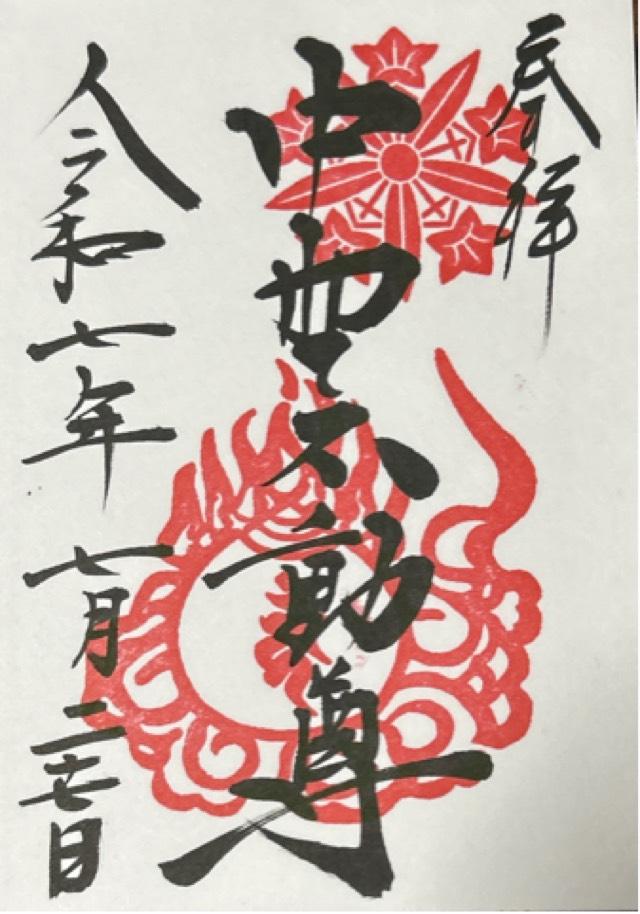 奉拝
中不動尊
令和七年 七月 二十七日